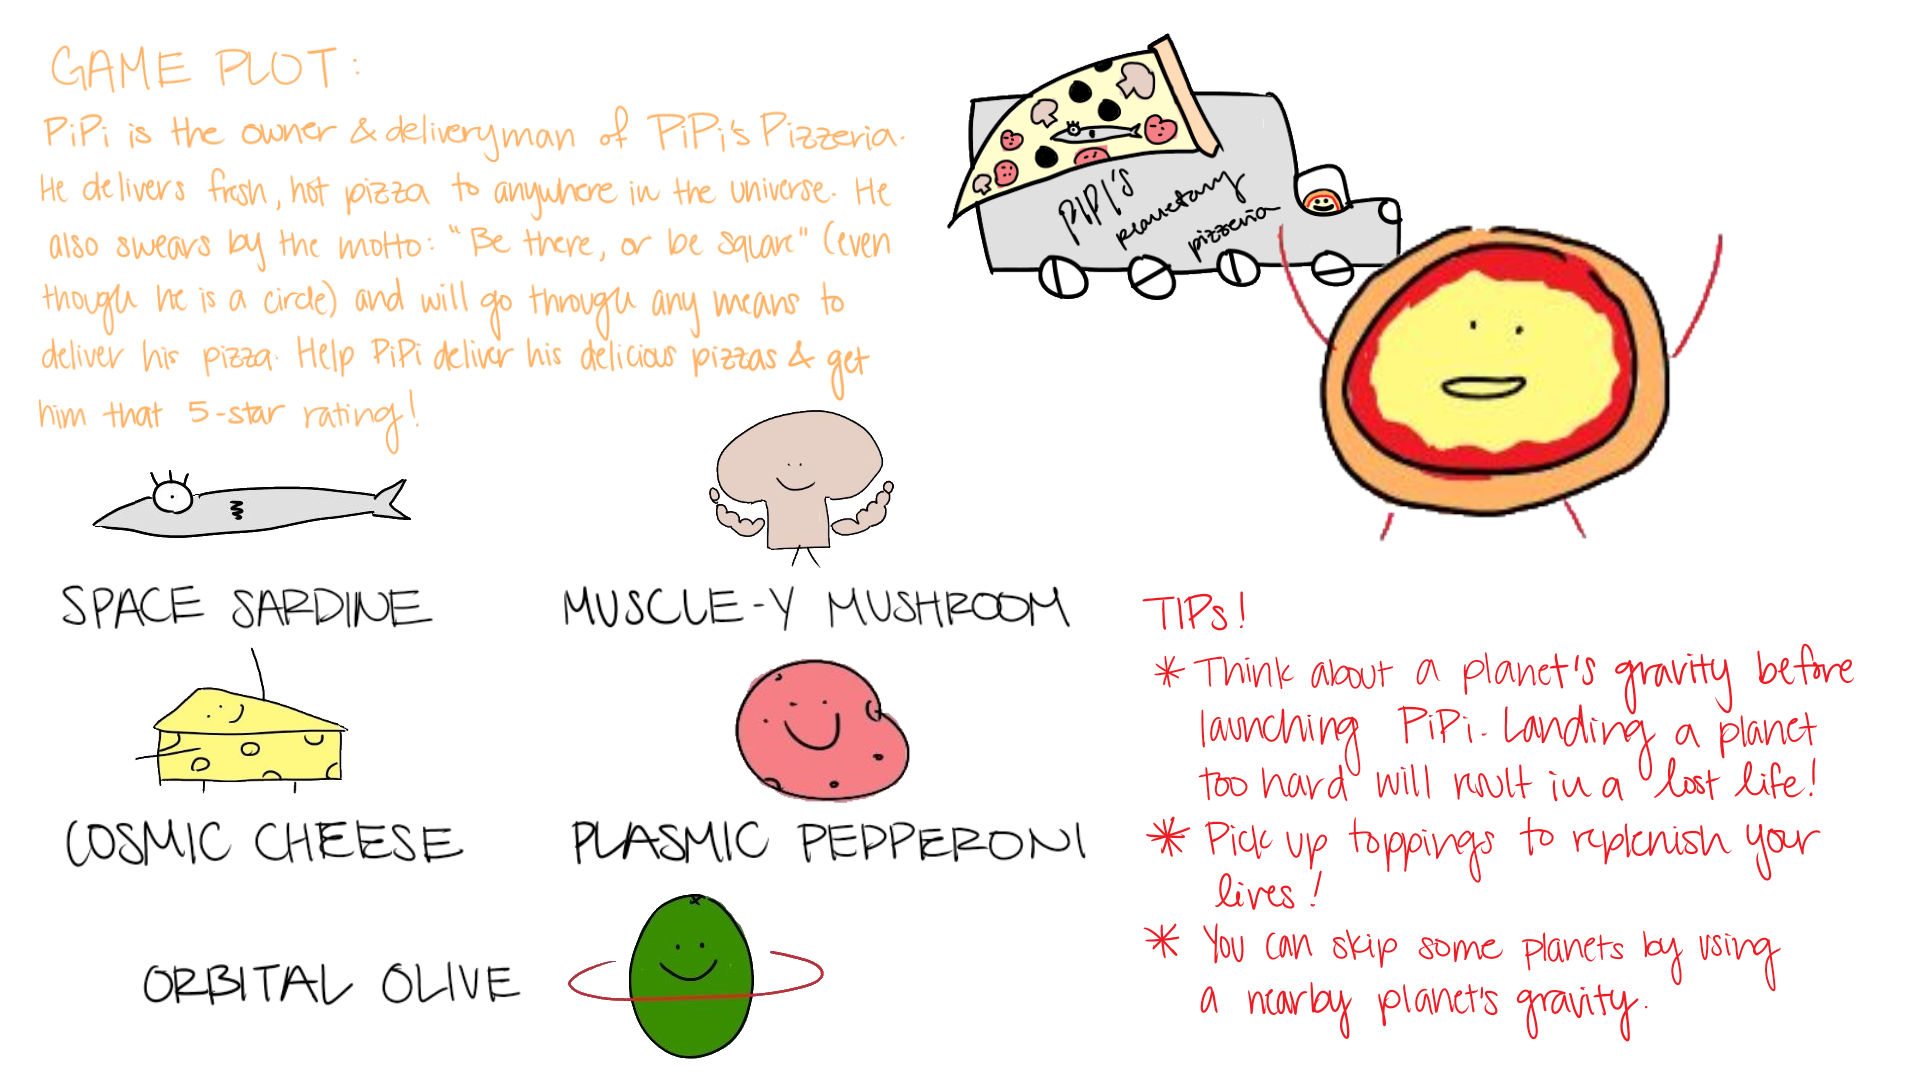 GAME PLOT:
PiPi is the owner & deliveryman of PiPi's Pizzeria.
He delivers fresh, hot pizza to anywhere in the universe. He
also swears by the motto: "Be there, or be square" (even
though he is a circle) and will go through any means to
deliver his pizza. Help PiPi deliver his delicious pizzas & get
him that 5-star rating!
PIPI'S
planetary
pizzeria
SPACE SARDINE
MUSCLE-Y MUSHROOM
COSMIC CHEESE
PLASMIC PEPPERONI
ORBITAL OLIVE
TIPs!
* Think about a planet's gravity before
launching PiPi. Landing a planet
too hard will result in a lost life!
* Pick up toppings to replenish your
lives!
* You can skip some planets by using
a nearby planet's gravity.